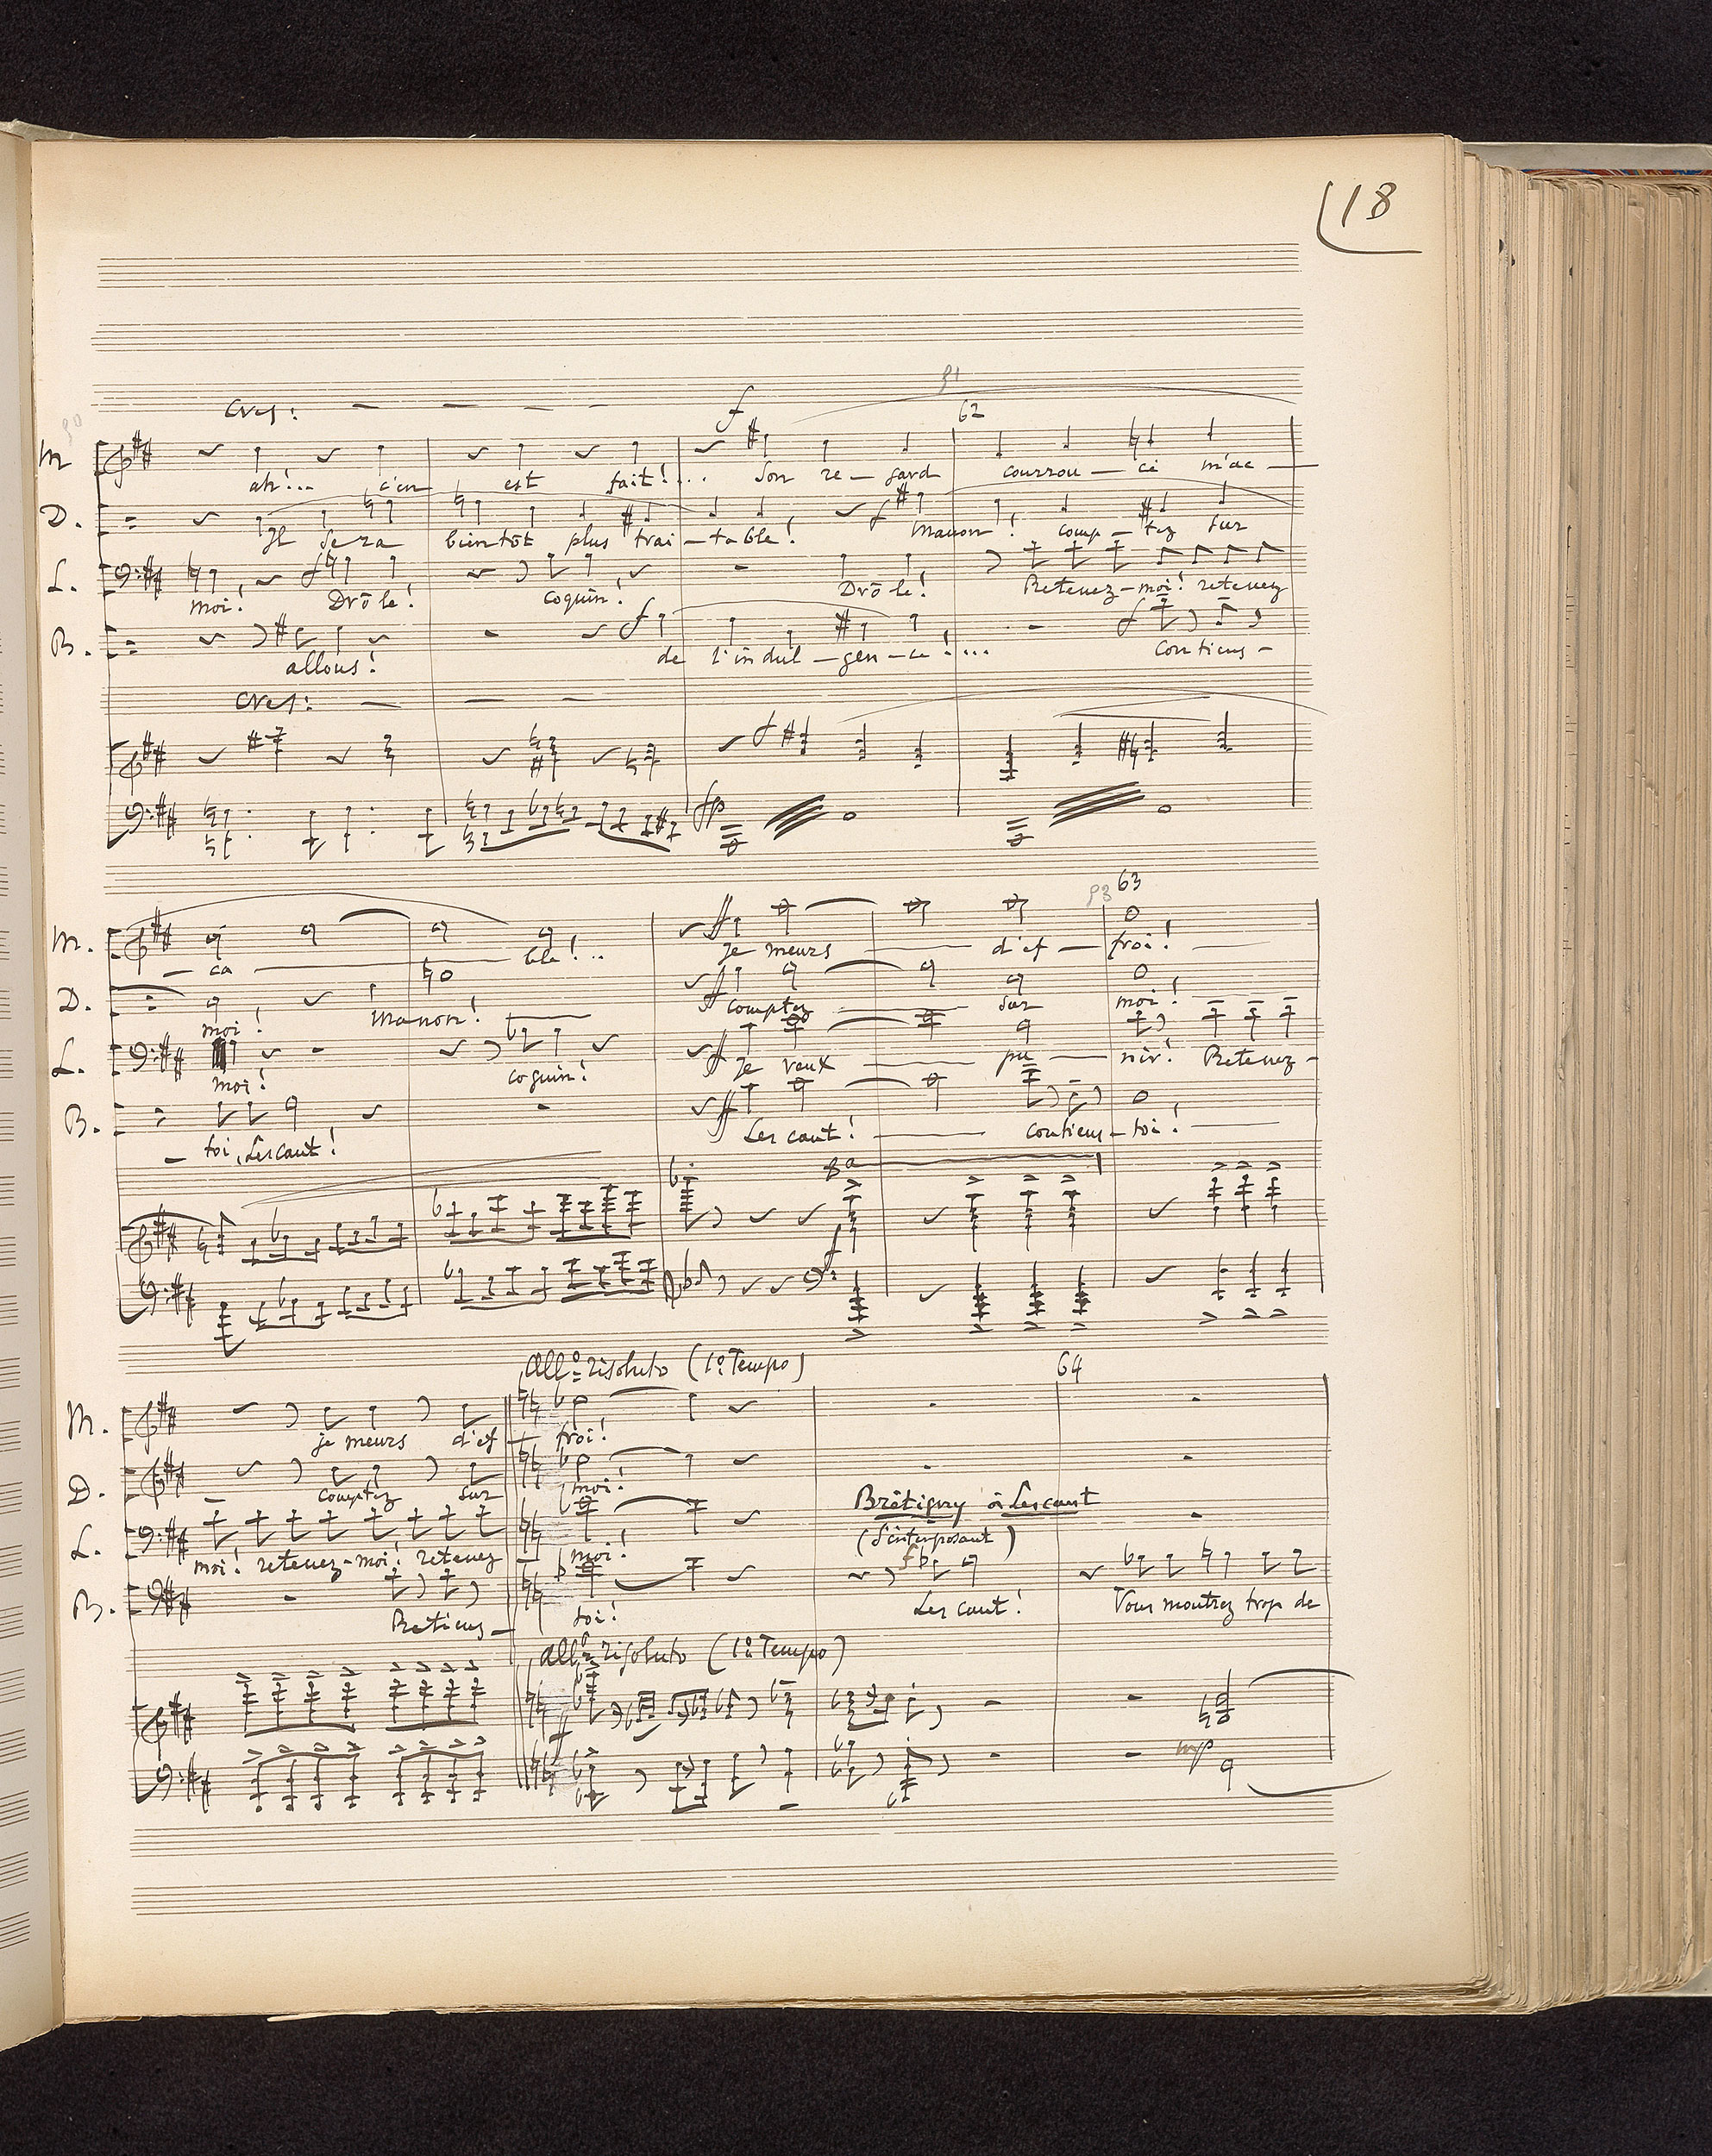 18
cres:
f
91
62
90
M
ah!... c'en est fait!... Son re-gard courrou-cé m'ac-
D.
Il sera bientôt plus trai-table! f Manon! comp-tez sur
L.
moi! f Drôle! coquin! Drôle! Retenez-moi! retenez
B.
allons! f de l'indul-gen-ce!... f Contiens-
cres:
f
fp
93 63
M.
-ca ble!.. ff Je meurs d'ef-froi!
D.
moi! Manon! ff comptez sur moi!
L.
moi! coquin! ff Je veux pu-nir! Retenez-
B.
-toi, Lescaut! ff Lescaut! contiens-toi!
8a
f
All° risoluto (1° Tempo) 64
M.
je meurs d'ef-froi!
D.
comptez sur moi!
Brétigny à Lescaut
(s'interposant)
L.
moi! retenez-moi! retenez-moi!
B.
Retiens-toi! f Lescaut! Vous montrez trop de
All° risoluto (1° Tempo)
ff
mp